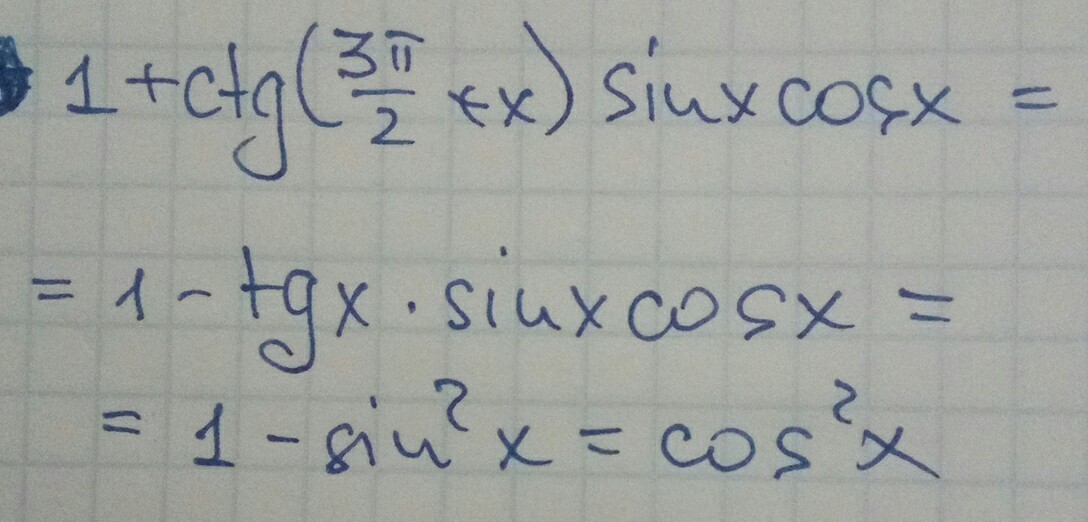 1 + ctg(3π/2 + x) sinx cosx =
= 1 - tgx · sinx cosx =
= 1 - sin²x = cos²x